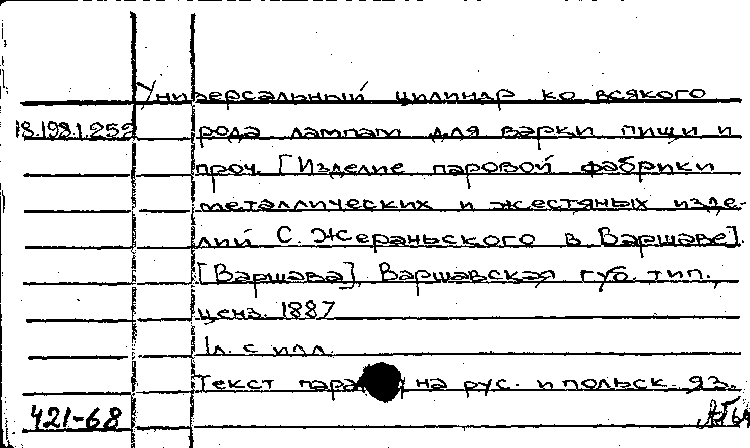 Универсальный цилиндр ко всякого
18.198.1.252 рода лампам для варки пищи и
проч. [Изделие паровой фабрики
металлических и жестяных изде-
лий С. Жераньского в Варшаве].
[Варшава], Варшавская губ. тип.,
ценз. 1887
1л. с илл.
Текст на рус. и польск. яз.
421-68